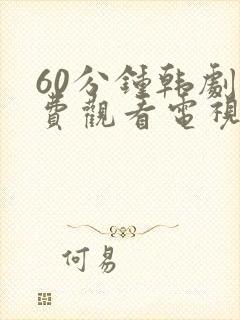 60分鐘韩劇
費觀看電視
何易